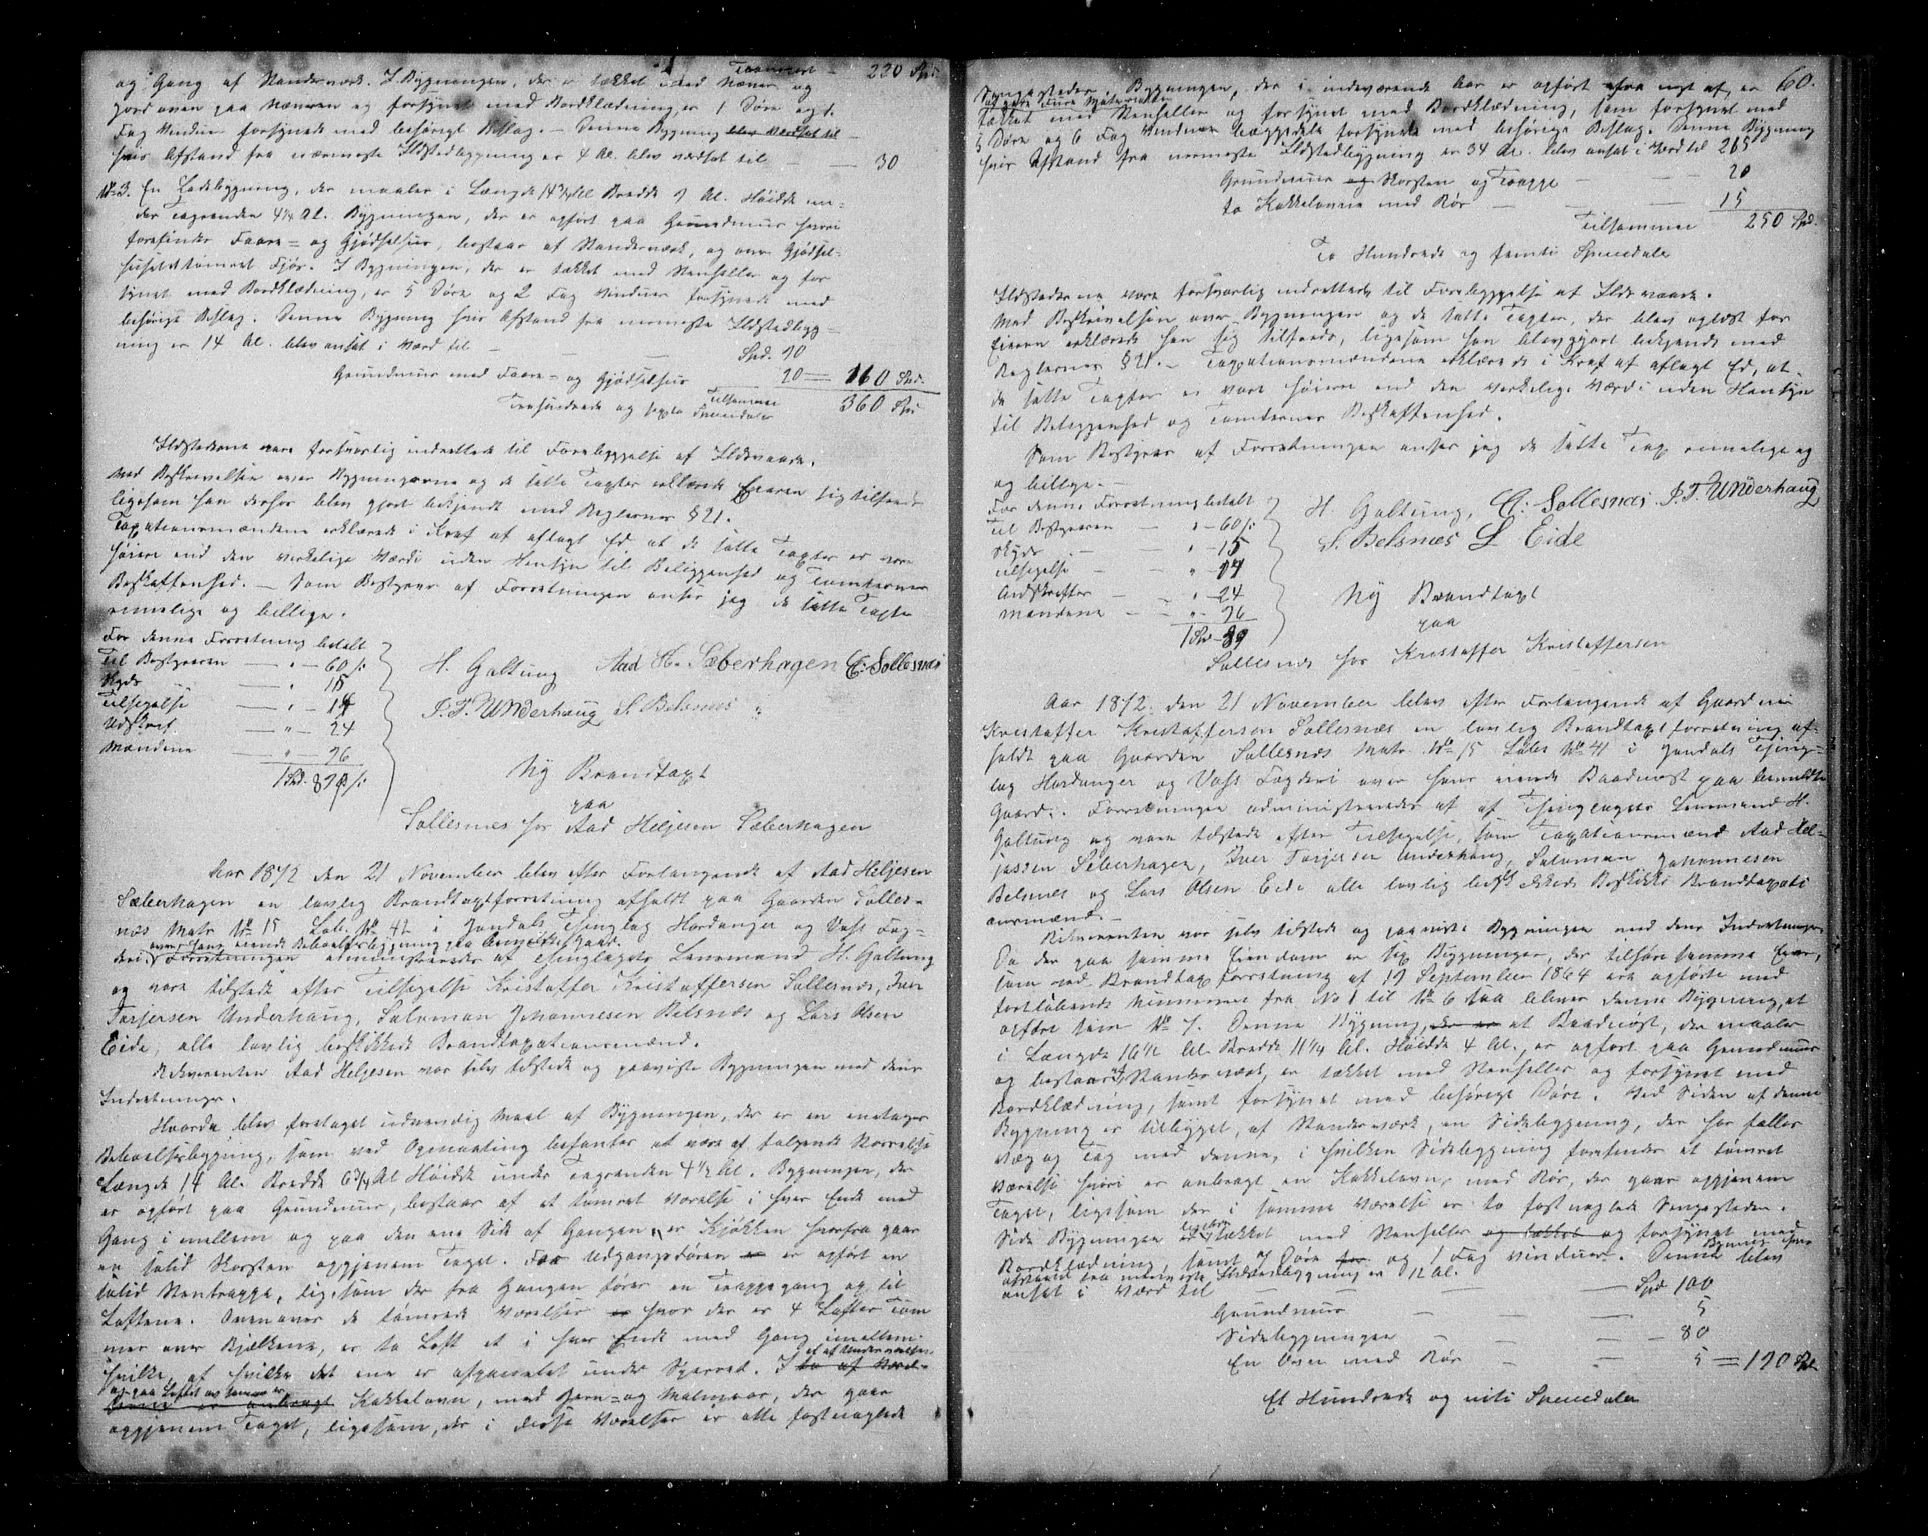 og Gang af Standerværk. I Bygningen, der er tækket med Næver og Transport - 220 Spd.
Jord oven paa Næveren og forsynet med Bordklædning, er 1 Døre og 1
Fag Vindue forsynede med behørigt Beslag. - Denne Bygning blev Værdsat til -
hvis Afstand fra nærmeste Ildstedbygning er 4 Al. blev værdsat til - - 30
No 3. En Ladebygning, der maaler i Længde 14 3/4 Al Bredde 9 Al. Høide un-
der Tagrenden 4 1/4 Al. Bygningen, der er opført paa Grundmur hvori
forefindes Faare- og Gjødselhus, bestaar af Standerværk, og over Gjødsel-
huset et tømret Fjøs. I Bygningen, der er tækket med Stenheller og for
synet med Bordklædning, er 5 Døre og 2 Fag Vinduer forsynede med
behørige Beslag. Denne Bygning hvis Afstand fra nærmeste Ildstedbyg-
ning er 14 Al. blev ansat i Værd til - - - Spd. 90
Grundmur med Faare- og Gjødselhus 20 = 110 Spd.
Tilsammen 360 Spd
Trehundrede og sexti Speciedaler
Ildstederne vare forsvarlig indrettede til Forebyggelse af Ildsvaade.
Med Beskrivelsen over Bygningerne og de satte Taxter erklærede Eieren sig tilfreds
ligesom han derhos blev gjort bekjendt med Reglernes § 21.
Taxationsmændene erklærede i Kraf af aflagt Ed at de satte Taxter ei vare
høiere end den virkelige Værdi uden Hensyn til Beliggenhed og Tomternes
Beskaffenhed. - Som Bestyrer af Forretningen anser jeg de satte Taxter
rimelige og billige.
For denne Forretning betalt
Til Bestyreren - " - 60 ß
Skyds - " 15
Tilsigelse - " - 14
Udskrift - " - 24
Mændene - " - 96
1 Spd. 89 ß
H. Galtung Aad H. Sæberhagen C. Sollesnæs
I. T. Underhaug S. Belsnæs
Ny Brandtaxt
paa
Sollesnes for Aad Heljesen Sæberhagen
Aar 1872 den 21 November blev efter Forlangende af Aad Heljesen
Sæberhagen en lovlig Brandtaxtforretning afholdt paa Gaarden Solles-
næs Matr No 15 Løb. No 42 i Jondals Thinglag Hardanger og Voss Fog-
over hans eiende Beboelsesbygning paa bemeldte Gaard.
deri. Forretningen administreredes af Thinglagets Lensmand H. Galtung
og vare tilstede efter Tilsigelse Kristoffer Kristoffersen Sollesnæs, Iver
Torjersen Underhaug, Salomon Johannesen Belsnæs og Lars Olsen
Eide, alle lovlig beskikkede Brandtaxationsmænd.
Rekvirenten Aad Heljesen var selv tilstede og paaviste Bygningen med dens
Indretninger.
Hvorda blev foretaget udvendig Maal af Bygningen, der er en enetages
Beboelsesbygning, som ved Opmaaling befantes at være af følgende Størrelse
Længde 14 Al. Bredde 6 3/4 Al Høide under Tagrenden 4 1/2 Al. Bygningen, der
er opført paa Grundmur, bestaar af et tømret Værelse i hver Ende med
Gang i mellem og paa den ene Side af Gangen er Kjøkken hvorfra gaar
en solid Skorsten opigjenem Taget. Foor Udgangsdøren er er opført en
solid Stentrappe, ligesom der fra Gangen fører en Trappegang op til
Loftene. Ovenover de tømrede Værelser er hvor der er 4 Lofter Tøm
mer over Bjælkene, er to Loft et i hver Ende med Gang imellem.
hvilke, af hvilke det ene er afpanelet under Sperred. I to af Værel- et af Underværelserne
og paa Loftet over samme er
serne er anbragt Kakkelovn, med Jern- og Malmrør, der gaar
opgjenem Taget, ligesom, der i disse Værelser er otte fastnaglede
60.
Sengesteder. Bygningen, der i indeværende Aar er opført fra nyt af er
af gode Furu Materialier
tækket med Stenheller og forsynet med Bordklædning, som forsynet med
5 Døre og 6 Fag Vinduer beggedele forsynede med behørige Beslag. Denne Bygning
hvis Afstand fra nærmeste Ildstedbygning er 34 Al. blev ansat i Værd til 215
Grundmur og Skorsten og Trappe - - - 20
to Kakkelovne med Rør - - - 15
Tilsammen 250 Spd.
To Hundrede og femti Speciedaler
Ildstederne vare forsvarlig indrettede til Forebyggelse af Ildsvaade.
Med Beskrivelsen over Bygningen og de satte Taxter, der blev oplæst for
Eieren erklærede han sig tilfreds, ligesom han blev gjort bekjendt med
Reglernes § 21. - Taxationsmændene erklærede i Kraf af aflagt Ed, at
de satte Taxter ei vare høiere end den virkelige Værdi uden Hensyn
til Beliggenhed og Tomternes Beskaffenhed.
Som Bestyrer af Forretningen anser jeg de satte Tax rimelige og
og billige. -
For denne Forretning betalt
Til Bestyreren - " - 60 ß
Skyds - - " - 15
Tilsigelse - - " - 14
Udskrifter - - " - 24
Mændene - - " - 96
1 Spd - 89
H. Galtung, C. Sollesnæs I. T. Underhaug
S. Belsnæs L Eide
Ny Brandtaxt
paa
Sollesnes for Kristoffer Kristoffersen
Aar 1872 den 21 November blev efter Forlangende af Gaardmd
Kristoffer Kristoffersen Sollesnæs en lovlig Brandtaxtforretning af-
holdt paa Gaarden Sollesnæs Matr. No 15 Løbs No 41 i Jondals Thing-
lag Hardanger og Voss Fogderi over hans eiende Baadnøst paa bemeldte
Gaard. Forretningen administreredes af af Thinglagets Lensmand H.
Galtung og vare tilstede efter Tilsigelse, som Taxationsmænd Aad Hel-
jessen Sæberhagen, Iver Torjersen Underhaug, Salomon Johannesen
Belsnæs og Lars Olsen Eide alle lovlig beskikkede Brandtaxati
onsmænd. -
Rekvirenten var selv tilstede og paaviste Bygningen med dens Indretninger
Da der paa samme Eiendom er sex Bygninger, der tilhøre samme Eier,
som ved Brandtaxtforretning af 19 September 1864 ere opførte med
fortløbende Nummere fra No 1 til No 6 saa bliver denne Bygning at
opføre som No 7. Denne Bygning, der er et Baadnøst, der maaler
i Længde 16 1/2 Al Bredde 11 1/4 Al. Høide 4 Al., er opført paa Grundmur
og bestaar af Standerværk, er tækket med Stenheller og forsynet med
Bordklædning, samt forsynet med behørige Døre. Ved Siden af denne
Bygning er tilbygget, af Standerværk, en Sidebygning, der har fælles
Væg og Tag med denne, i hvilken Sidebygning forefindes et tømret
Værelse hvori er anbragt en Kakkelovn, med Rør, der gaar opgjenem
Taget, ligesom der i samme Værelse er to fastnaglede Sengesteder.
Side Bygningen er ligeledes tækket med Stenheller og tækket og forsynet med
Bordklædning, samt af Døre for og 1 Fag Vinduer. Denne Bygning hvis
Afstand fra nærmeste Ildstedbygning er 12 Al. blev
ansat i Værd til - - - Spd 100
Grundmur - - - 5
Sidebygningen - - - 80
En Ovn med Rør - - 5 = 190 Spd.
Et Hundrede og niti Speciedaler